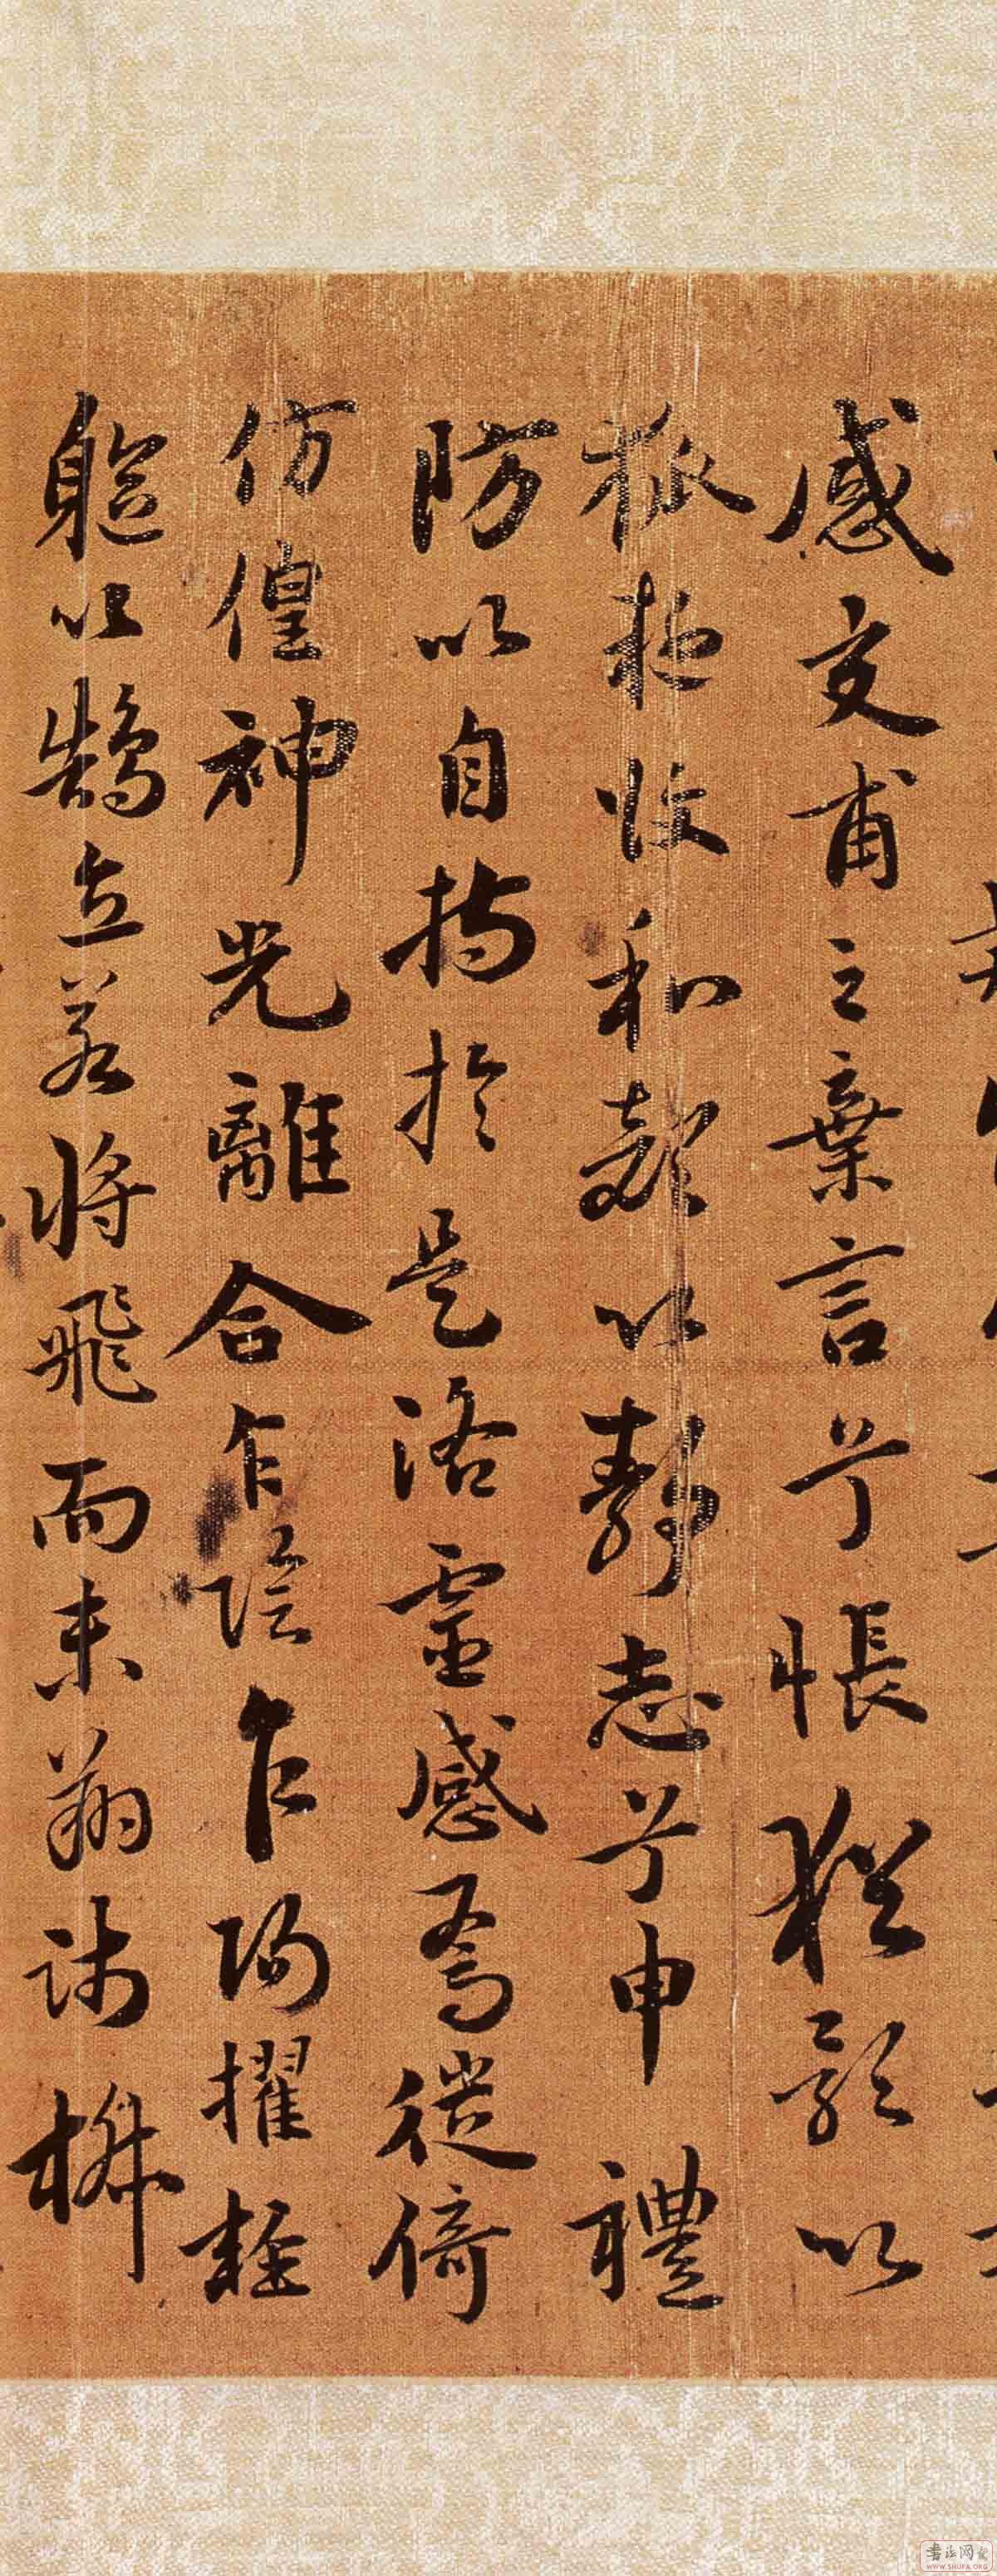 感交甫之棄言兮悵猶豫以
狐疑收和顏以靜志兮申禮
防以自持於是洛靈感焉徙倚
仿偟神光離合乍陰乍陽擢輕
軀以鵠立若將飛而未翔踐椒
WWW.SHUFA.ORG